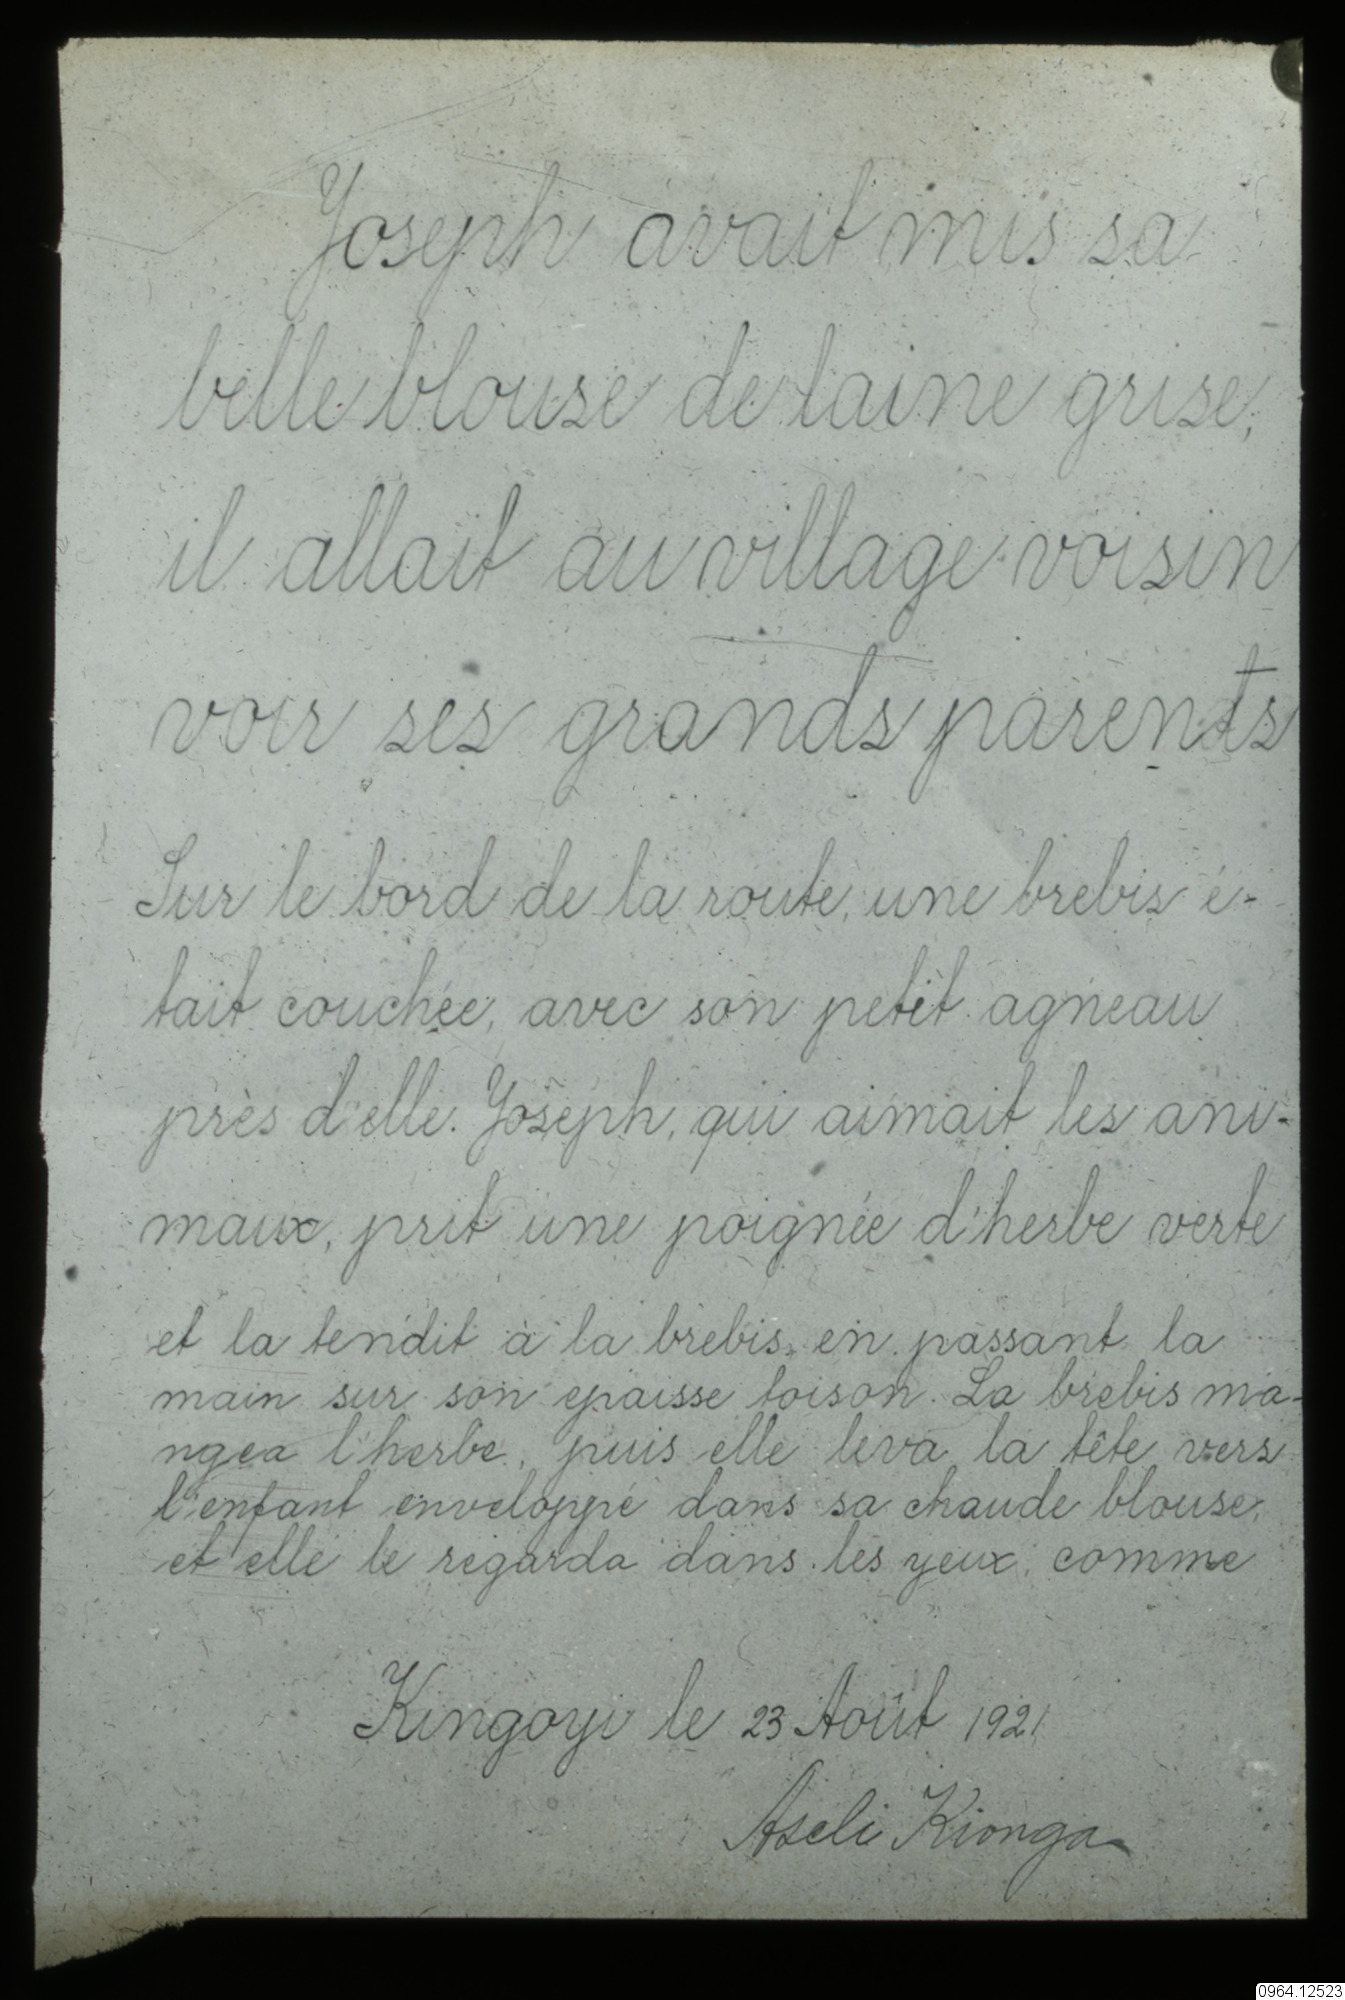 Joseph avait mis sa
belle blouse de laine grise,
il allait au village voisin
voir ses grands parents
Sur le bord de la route, une brebis é-
tait couchée, avec son petit agneau
près d'elle. Joseph, qui aimait les ani-
maux, prit une poignée d'herbe verte
et la tendit à la brebis, en passant la
main sur son epaisse toison. La brebis ma-
ngea l'herbe, puis elle leva la tête vers
l'enfant enveloppé dans sa chaude blouse,
et elle le regarda dans les yeux, comme
Kingoyi le 23 Août 1921
Aseli Kionga
0964.12523